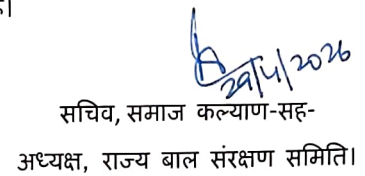 है।
29/4/2026
सचिव, समाज कल्याण-सह-
अध्यक्ष, राज्य बाल संरक्षण समिति।